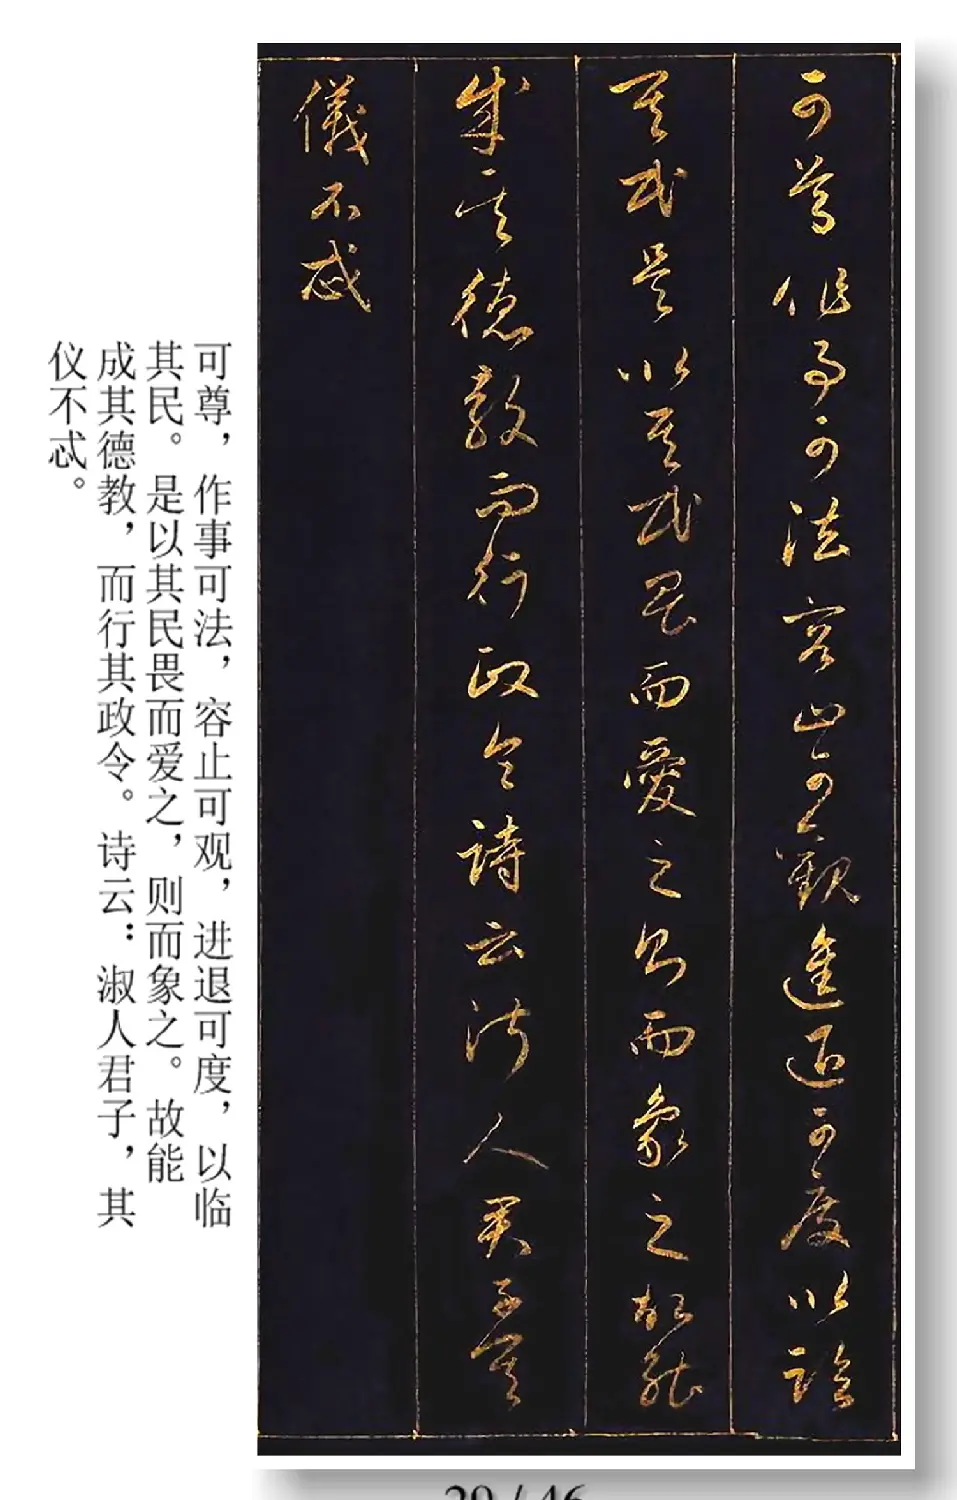 可尊作事可法容止可觀進退可度以臨
其民是以其民畏而愛之則而象之故能
成其德教而行政令詩云淑人君子其
儀不忒
可尊，作事可法，容止可观，进退可度，以临
其民。是以其民畏而爱之，则而象之。故能
成其德教，而行其政令。诗云：淑人君子，其
仪不忒。